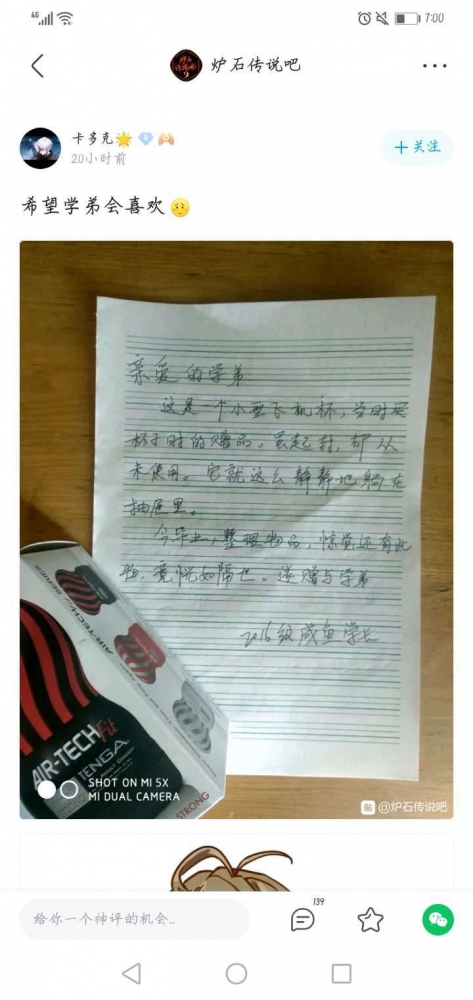 4G
7:00
炉石传说吧
卡多克
20小时前
+关注
希望学弟会喜欢
亲爱的学弟
这是一个小型飞机杯，当时买
杯子时的赠品。虽起封，却从
未使用。它就这么静静地躺在
抽屉里。
今毕业，整理物品，惊觉还有此
物，竟恍如隔世。遂赠与学弟
2016级咸鱼学长
AIR-TECH SERIES
AIR-TECH Fit
TENGA
STRONG
SHOT ON MI 5X
MI DUAL CAMERA
贴 @炉石传说吧
给你一个神评的机会...
139